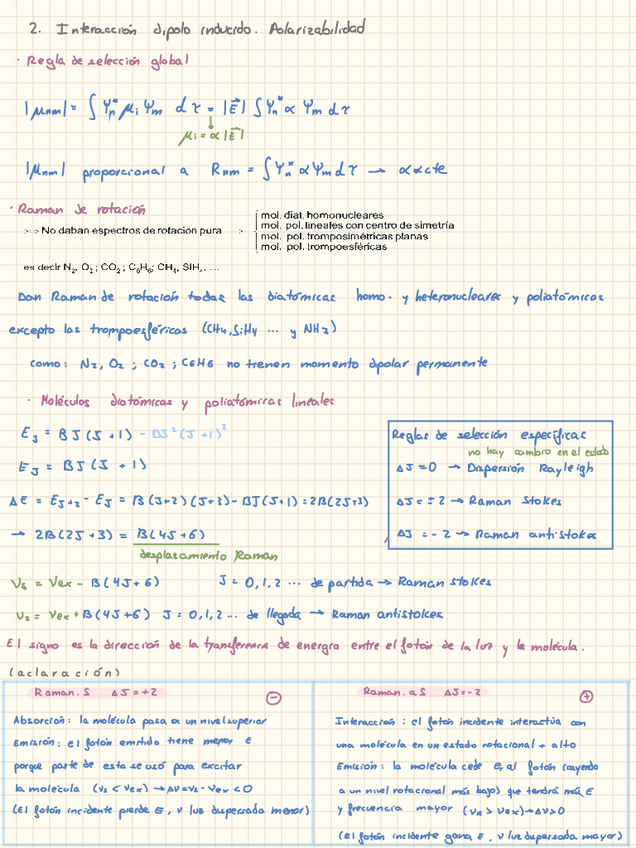 2. Interacción dipolo inducido. Polarizabilidad
· Regla de selección global
|μnm| = ∫ Ψn* μi Ψm dτ = |E⃗| ∫ Ψn* α Ψm dτ
↓
μi = α |E⃗|
|μnm| proporcional a Rnm = ∫ Ψn* α Ψm dτ → α ≠ cte
· Raman de rotación
=> No daban espectros de rotacion pura > { mol. diat. homonucleares
mol. pol. lineales con centro de simetría
mol. pol. tromposimétricas planas
mol. pol. trompoesféricas
es decir N₂, O₂ ; CO₂ ; C₆H₆; CH₄, SiH₄, ...
Dan Raman de rotación todas las diatómicas homo- y heteronucleares y poliatómicas
excepto las trompoesféricas (CH4, SiH4 ... y NH3)
como: N2, O2 ; CO2 ; C6H6 no tienen momento dipolar permanente
· Moléculas diatómicas y poliatómicas lineales
EJ = BJ(J+1) - DJ²(J+1)²
EJ = BJ(J+1)
ΔE = EJ+2 - EJ = B(J+2)(J+3) - BJ(J+1) = 2B(2J+3)
→ 2B(2J+3) = B(4J+6)
desplazamiento Raman
Reglas de selección específicas
no hay cambio en el estado
ΔJ = 0 → Dispersión Rayleigh
ΔJ = +2 → Raman Stokes
ΔJ = -2 → Raman antistokes
νs = νex - B(4J+6) J = 0, 1, 2 ... de partida → Raman stokes
νs = νex + B(4J+6) J = 0, 1, 2 ... de llegada → Raman antistokes
El signo es la dirección de la transferencia de energía entre el fotón de la luz y la molécula.
(aclaración)
Raman. S ΔJ = +2 ⊖
Absorción: la molécula pasa a un nivel superior
Emisión: El fotón emitido tiene menor E
porque parte de esta se usó para excitar
la molécula (νs < νex) → Δν = νs - νex < 0
(El fotón incidente pierde E, ν luz dispersada menor)
Raman. aS ΔJ = -2 ⊕
Interacción: el fotón incidente interactúa con
una molécula en un estado rotacional + alto
Emisión: la molécula cede E al fotón (cayendo
a un nivel rotacional más bajo) que tendrá más E
y frecuencia mayor (νs > νex) → Δν > 0
(El fotón incidente gana E, ν luz dispersada mayor)